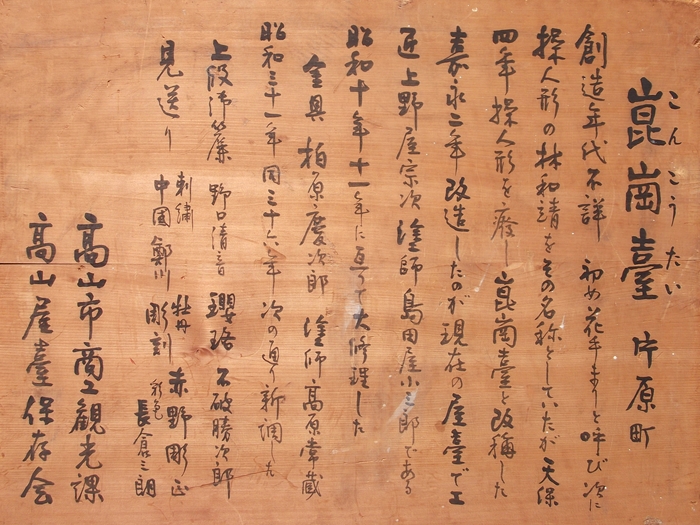 こんこうたい
崑崗臺 片原町
創造年代不詳 初め花手まりと呼び次に
操人形の林和靖をその名称としていたが天保
四年操人形を廃し崑崗臺と改稱した
嘉永二年改造したのが現在の屋臺で工
匠上野屋宗次 塗師島田屋小三郎である
昭和十年十一年に亘って大修理した
金具 柏原慶次郎 塗師高原常蔵
昭和三十一年 同三十六年 次の通り新調した
上段御簾 野口清音 瓔珞 不破勝次郎
見送り 刺繍 中國鄭川 牡丹彫刻 赤野彫正
彩色 長倉三朗
高山市商工観光課
高山屋臺保存会